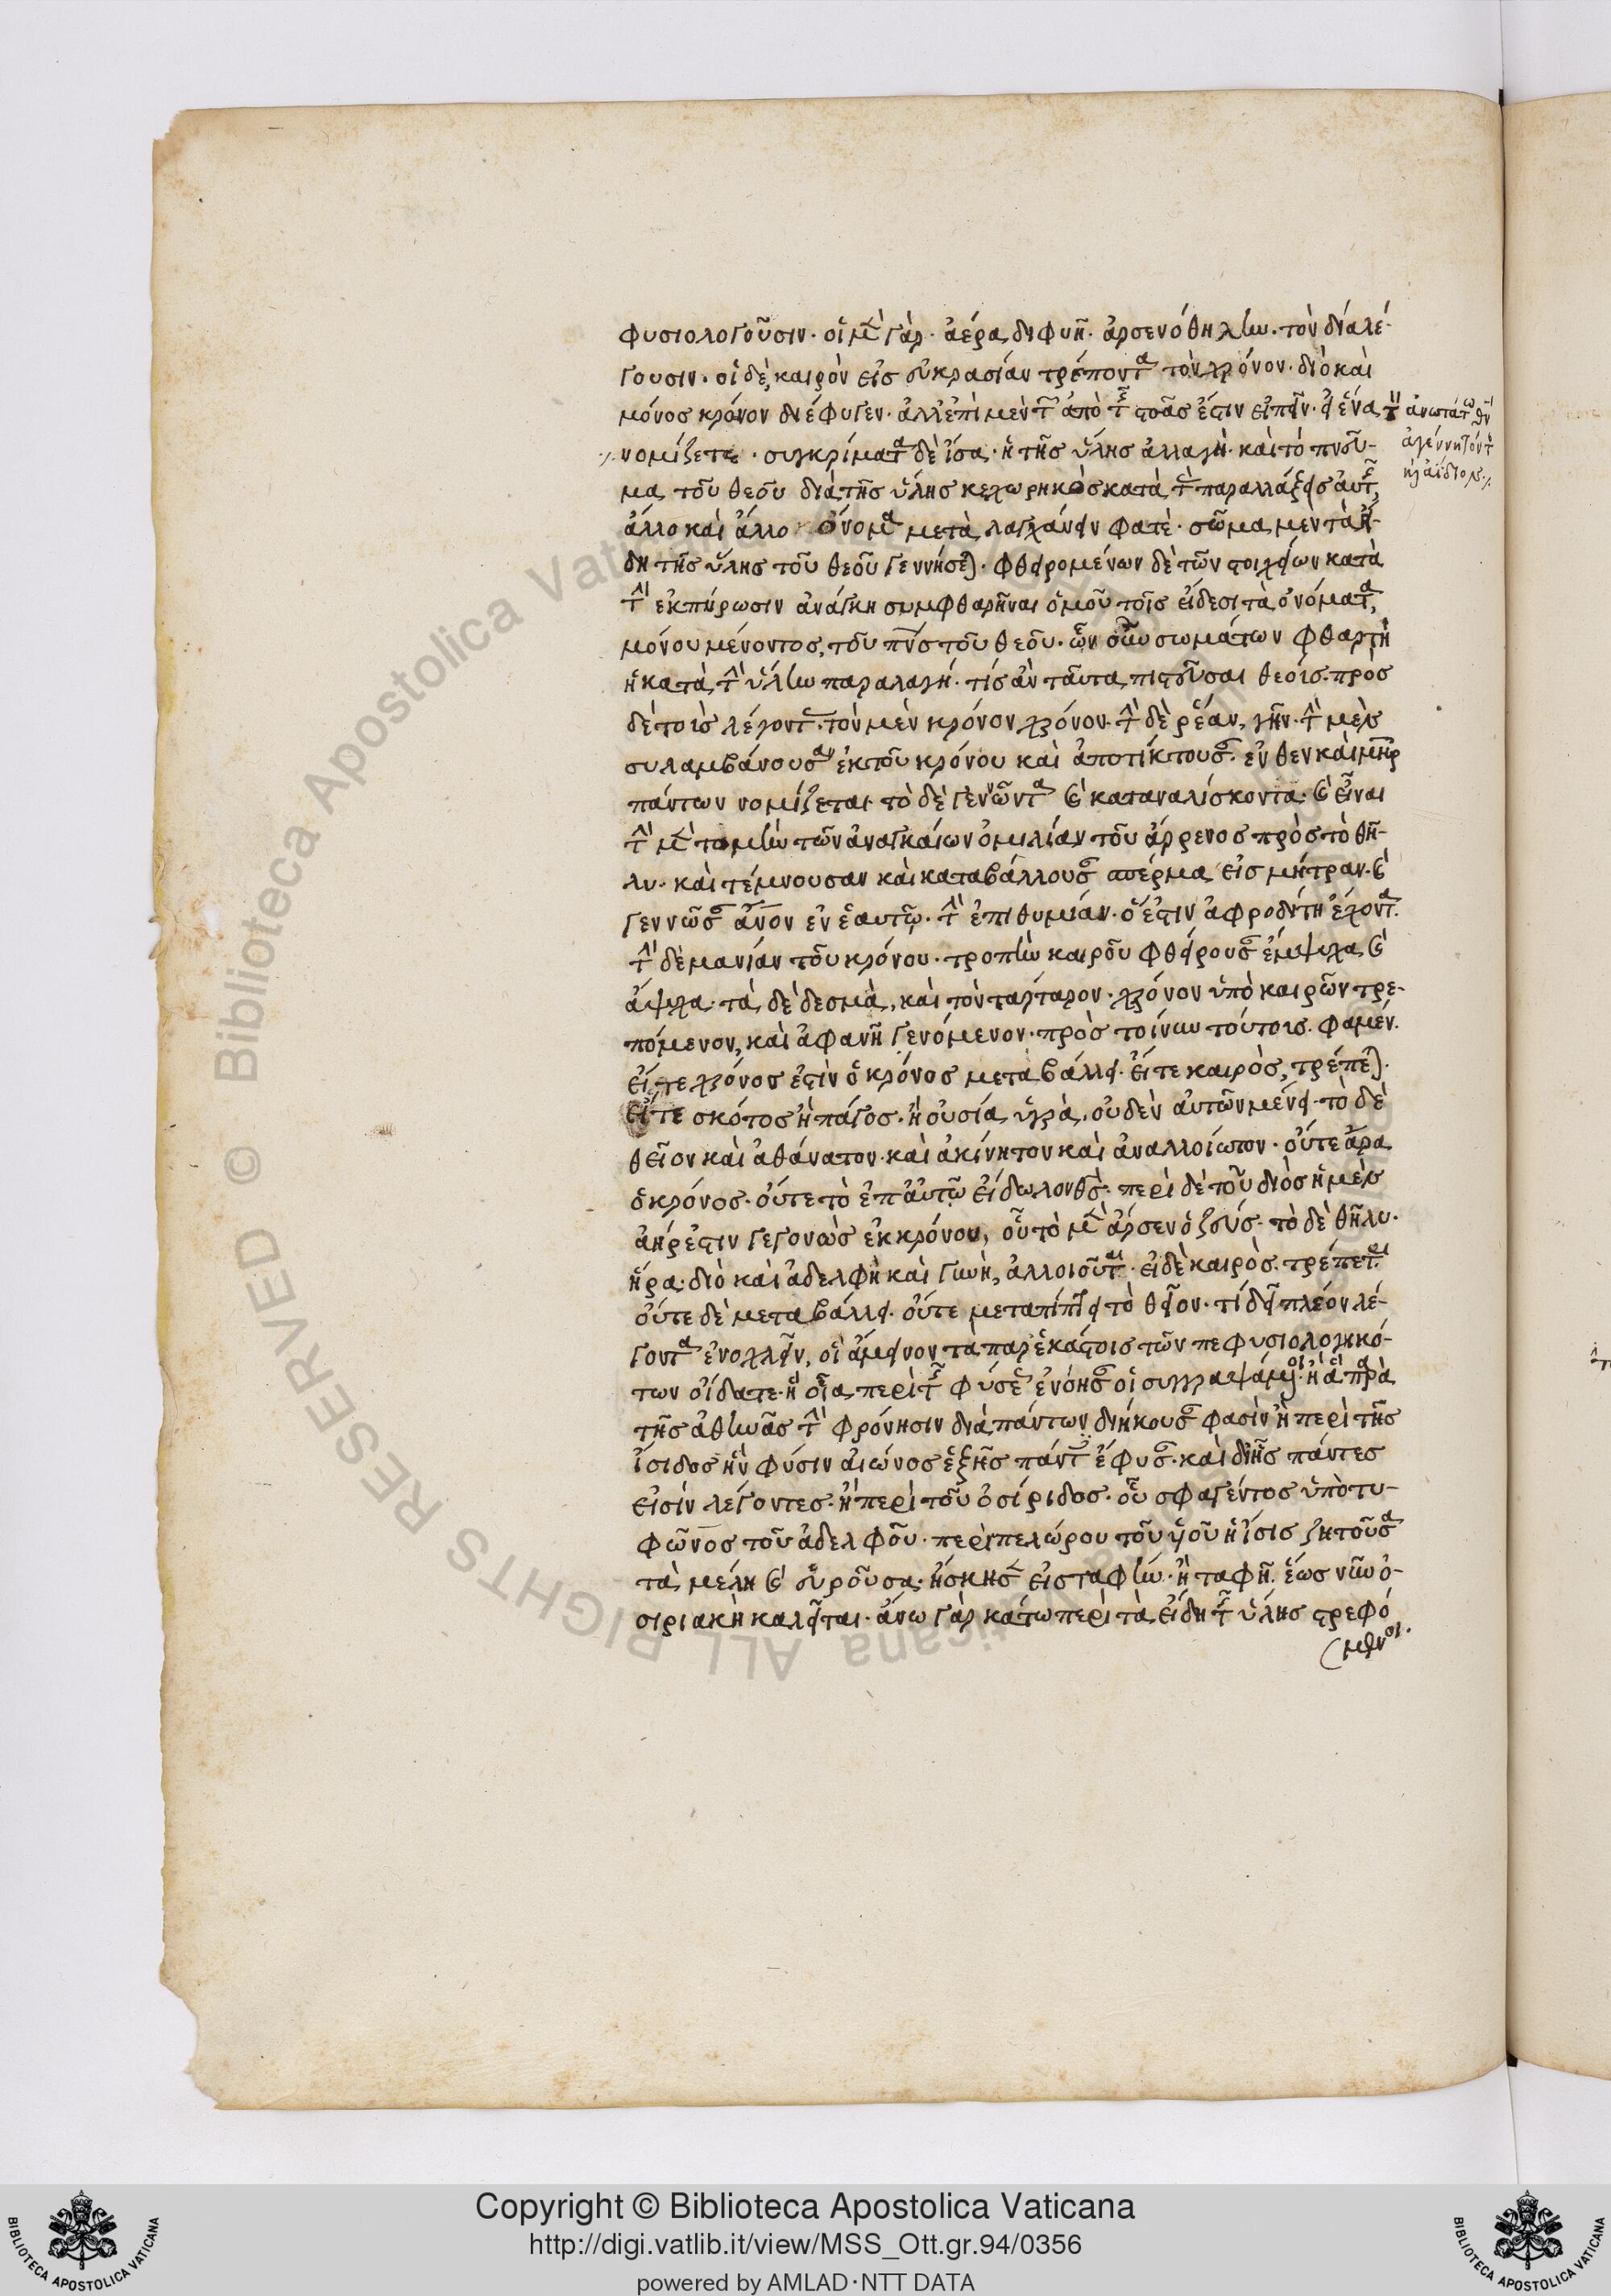 φυσιολογοῦσιν· οἱ μὲν γὰρ· ἀέρα διφυῆ· ἀρσενόθηλυν· τὸν δία λέ-
γουσιν· οἱ δὲ, καιρὸν εἰς εὐκρασίαν τρέποντα τὸν χρόνον· διὸ καὶ
μόνος κρόνον διέφυγεν· ἀλλ' ἐπὶ μὲν τῶν ἀπὸ τῆς στοᾶς ἔστιν εἰπεῖν· εἰ ἕνα
νομίζεται · συγκρίματα δὲ ἴσα· ἡ τῆς ὕλης ἀλλαγὴ· καὶ τό πνεῦ-
μα τοῦ θεοῦ διὰ τῆς ὕλης κεχωρηκὸς κατὰ τὰς παραλλάξεις αὐτῆς,
ἄλλο καὶ ἄλλο ὄνομα μεταλαγχάνειν φατὲ· σῶμα μὲν τὰ εἴ-
δη τῆς ὕλης τοῦ θεοῦ γεννήσεται· φθειρομένων δὲ τῶν στοιχείων κατὰ
τὴν ἐκπύρωσιν ἀνάγκη συμφθαρῆναι ὁμοῦ τοῖς εἴδεσι τὰ ὀνόματα,
μόνου μένοντος, τοῦ πνς τοῦ θεοῦ· ὧν οὖν σωμάτων φθαρτὴ
ἡ κατὰ τὴν ὕλην παραλαγή· τίς ἂν ταῦτα πιστεῦσαι θεοίς· πρὸς
δὲ τοὺς λέγοντας· τὸν μὲν κρόνον χρόνον· τὴν δὲ ῥέαν, γῆν· τὴν μὲν
συλαμβάνουσαν ἐκ τοῦ κρόνου καὶ ἀποτίκτουσαν· ἔνθεν καὶ μηρ
πάντων νομίζεται· τὸ δὲ γενῶντα καὶ καταναλίσκοντα· καὶ εἶναι
τὴν μὲν τομὴν τῶν ἀναγκαίων ὁμιλίαν τοῦ ἄρρενος πρὸς τὸ θῆ-
λυ· καὶ τέμνουσαν καὶ καταβάλλουσαν σπέρμα εἰς μήτραν· καὶ
γεννῶσαν ἄνον ἐν ἑαυτῶ· τὴν ἐπιθυμίαν· ὅ ἐστιν ἀφροδίτη ἔχοντα·
τὴν δὲ μανίαν τοῦ κρόνου· τροπὴν καιροῦ φθείρουσαν ἔμψυχα καὶ
ἄψυχα· τὰ δὲ δεσμὰ, καὶ τὸν τάρταρον· χρόνον ὑπὸ καιρῶν τρε-
πόμενον, καὶ ἀφανῆ γενόμενον· πρὸς τοίνυν τούτοις· φαμέν·
εἴ τε χρόνος ἐστὶν ὁ κρόνος μεταβάλλει· εἴτε καιρὸς, τρέπεται·
εἴτε σκότος ἢ πάγος· ἢ οὐσία ὑγρὰ· οὐδὲν αὐτῶν μένει· τὸ δὲ
θεῖον καὶ ἀθάνατον· καὶ ἀκίνητον καὶ ἀναλλοίωτον· οὔτε ἄρα
ὁ κρόνος· οὔτε τὸ ἐπ' αὐτῶ εἴδωλον θς· περὶ δὲ τοῦ διὸς ἡ μὲν
ἀήρ ἐστιν γεγονὼς ἐκ κρόνου, οὗ τὸ μὲν ἄρσεν ὁ ζεύς· τὸ δὲ θῆλυ·
ἥρα· διὸ καὶ ἀδελφὴ καὶ γυνὴ, ἀλλοιοῦται· εἰ δὲ καιρὸς· τρέπεται·
οὔτε δὲ μεταβάλλει· οὔτε μεταπίπτει τὸ θεῖον· τί δεῖ πλέον λέ-
γοντα ἐνοχλεῖν, οἳ ἄμεινον τὰ παρ' ἑκάστοις τῶν πεφυσιολογηκό-
των οἴδατε· ἢ οἷα περὶ τῆς φύσεως ἐνόησαν οἱ συγγραψάμενοι· ἢ ἃ περὰ
τῆς ἀθηνᾶς τὴν φρόνησιν διὰ πάντων διήκουσαν φασὶν ἢ περὶ τῆς
ἴσιδος ἣν φύσιν αἰώνος ἐξ ἧς πάντες ἔφυσαν· καὶ δι' ἧς πάντες
εἰσὶν λέγοντες· ἢ περὶ τοῦ ὀσίριδος· οὗ σφαγέντος ὑπὸ τυ-
φῶνος τοῦ ἀδελφοῦ· περὶ πελώρου τοῦ ὑοῦ ἡ ἴσις ζητοῦσα
τὰ μέλη καὶ εὑροῦσα· ἤσκησεν εἰς ταφὴν· ἣ ταφὴ ἕως νῦν ὀ-
σιριακὴ καλεῖται· ἄνω γὰρ κάτω περὶ τὰ εἴδη τῆς ὕλης στρεφό
μενοι·
ἀνωτάτω θν
ἀγέννητόν τε
καὶ ἀΐδιον
Copyright © Biblioteca Apostolica Vaticana
http://digi.vatlib.it/view/MSS_Ott.gr.94/0356
powered by AMLAD·NTT DATA
BIBLIOTECA APOSTOLICA VATICANA
BIBLIOTECA APOSTOLICA VATICANA
© Biblioteca Apostolica Vaticana ALL RIGHTS RESERVED